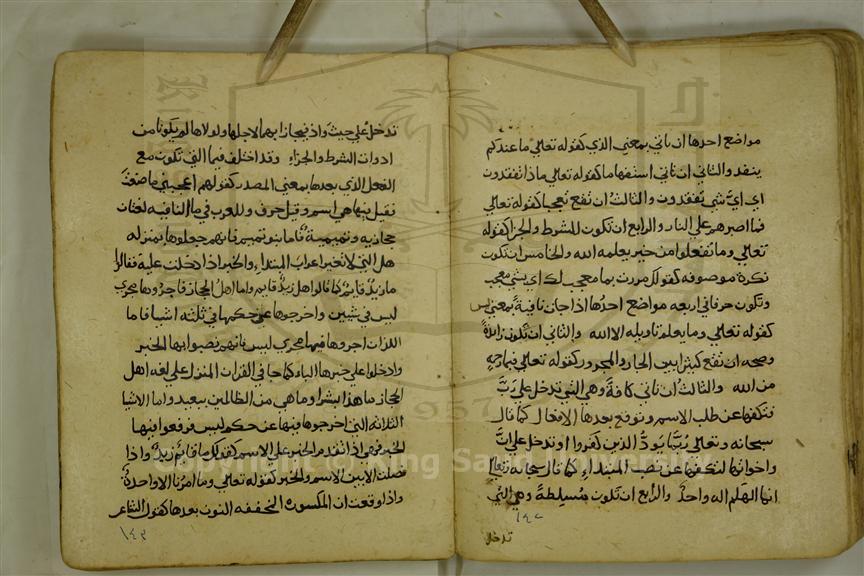 مواضع احدها ان تاتي بمعني الذي كقوله تعالي ما عندكم
ينفد والثاني ان تاتي استفهاما كقوله تعالي ماذا تفقدون
اي ايّ شي تفقدون والثالث ان تقع تعجبا كقوله تعالي
فما اصبرهم علي النار والرابع ان تكون للشرط والجزا كقوله
تعالي وما تفعلوا من خير يعلمه الله والخامس ان تكون
نكرة موصوفه كقولك مررت بما معجب لك اي بشي معجب
وتكون حرفا في اربعه مواضع احدُها اذا جات نافيةً بمعني ليس
كقوله تعالي وما يعلم تاويله الا الله والثاني ان تكون زائدةً
وصحه ان تقع كثيرا بين الجار والمجرور كقوله تعالي فبما رحمةٍ
من الله والثالث ان تاتي كافةً وهي التي تدخل علي ربّ
فتكفها عن طلب الاسم وتوقع بعدها الافعال كما قال
سبحانه وتعالي ربّما يودُّ الذين كفروا او تدخل علي انّ
واخواتها لتكفها عن نصب المبتداء كما قال سبحانه وتعالي
انما الهكم اله واحدٌ والرابع ان تكون مُسيلطةً وهي التي
تدخل
١٤٢
تدخل علي حيث واذ فيجازا بهما لاجلها ولولاها لم يكونا من
ادوات الشرط والجزاء وقد اختلف فيما التي تكون مع
الفعل الذي بعدها بمعني المصدر كقولهم اعجبني ما صنعت
فقيل انها هي اسم وقيل حرف وللعرب في ما النافيه لغتان
حجازيه وتميمية فاما بنو تميم فانهم جعلوها بمنزله
هل التي لا تغير اعراب المبتداء والخبر اذا دخلت عليه فقالوا
ما زيدٌ قايمٌ كما قالوا هل زيدٌ قايم واما اهل الحجاز فاجروها مجري
ليس في شيين واخرجوها عن حكمها في ثلثه اشيا فاما
اللذان اجروها فيهما مجري ليس فانهم نصبوا بها الخبر
وادخلوا علي خبرها الباء كما جا في القران المنزل علي لغه اهل
الحجاز ما هذا بشرا وما هي من الظالمين ببعيد واما الاشيا
الثلاثه التي اخرجوها فيها عن حكم ليس فرفعوا فيها
الخبر فهو اذا تقدم الخبر علي الاسم كقولك ما قائمٌ زيدٌ واذا
فصلت الا بين الاسم والخبر كقوله تعالي وما امرنا الا واحدةٌ
واذا وقعت ان المكسورة المخففه النون بعدها كقول الشاعر
١٤٣